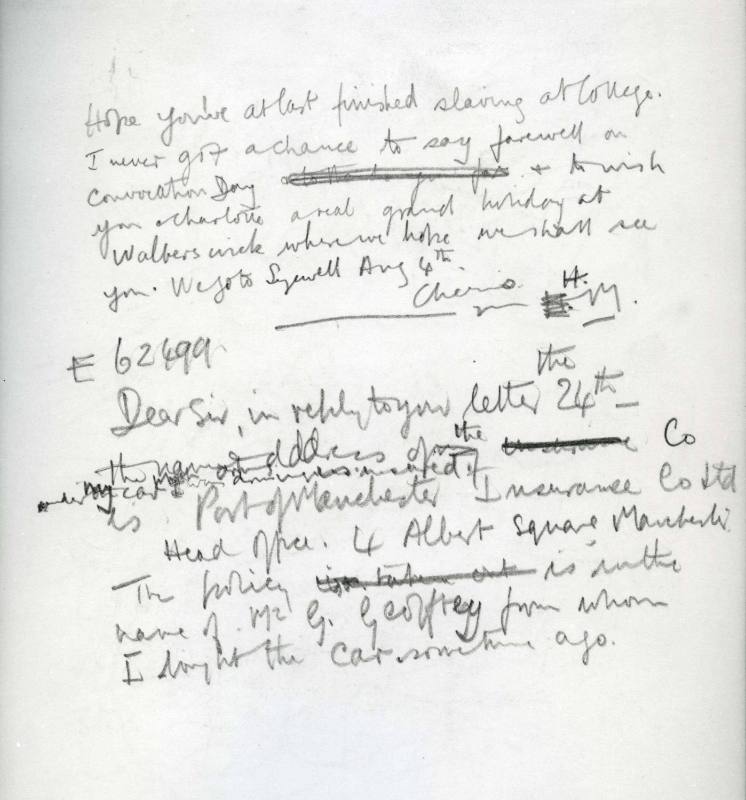 Hope you've at last finished slaving at College.
I never got a chance to say farewell on
Convocation Day & to wish
you & Charlotte a real grand holiday at
Walberswick where we hope we shall see
you. We go to Sizewell Aug 4th
Cheerio H.
H. M.
E 62499
the
Dear Sir, in reply to your letter 24th –
the name & address of the Co
my car is insured
is Port of Manchester Insurance Co Ltd
Head Office. 4 Albert Square Manchester
The policy is in the
name of Mr G. Geoffrey from whom
I bought the car sometime ago.